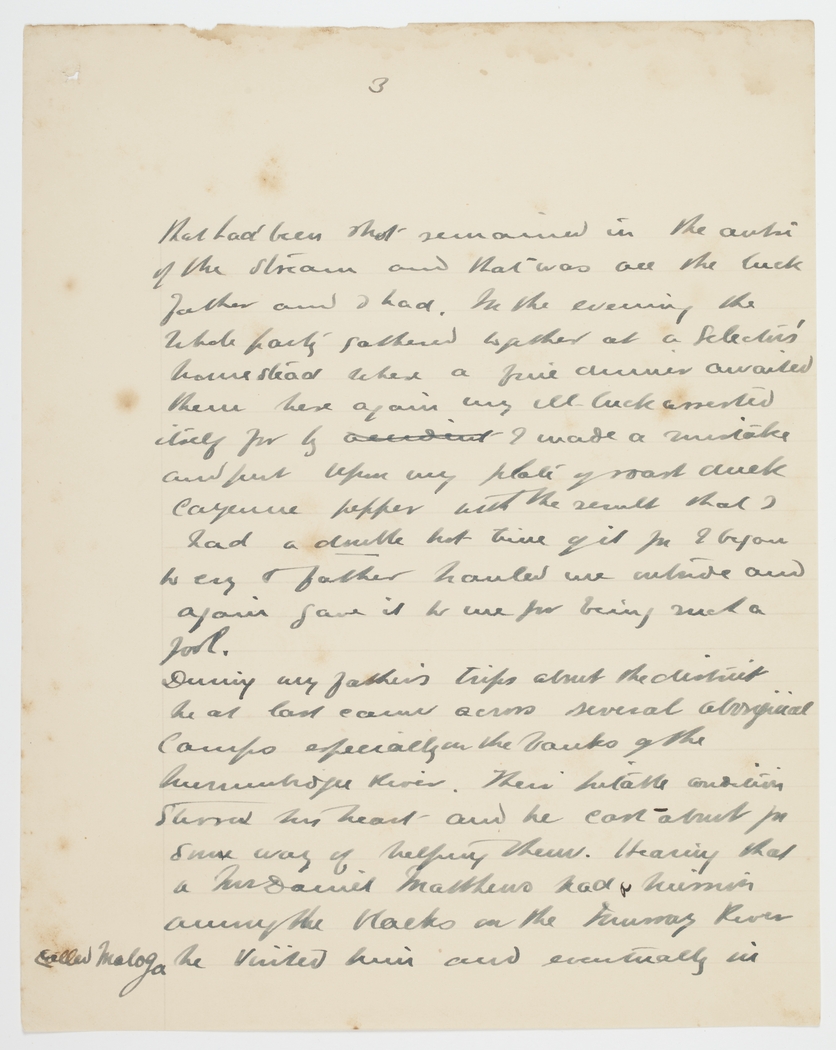 3
that had been shot remained in the centre
of the stream and that was all the luck
father and I had. In the evening the
whole party gathered together at a Selectors'
homestead where a fine dinner awaited
them here again my ill-luck asserted
itself for by accident I made a mistake
and put upon my plate of roast duck
Cayenne pepper with the result that I
had a double hot time of it for I began
to cry & father hauled me outside and
again gave it to me for being such a
fool.
During my father's trips about the district
he at last came across several aboriginal
Camps especially on the banks of the
Murrumbidgee River. Their pitable condition
Stirred his heart and he cast about for
Some way of helping them. Hearing that
a Mr Daniel Matthews had a mission
among the blacks on the Murray River
called Maloga he visited him and eventually in